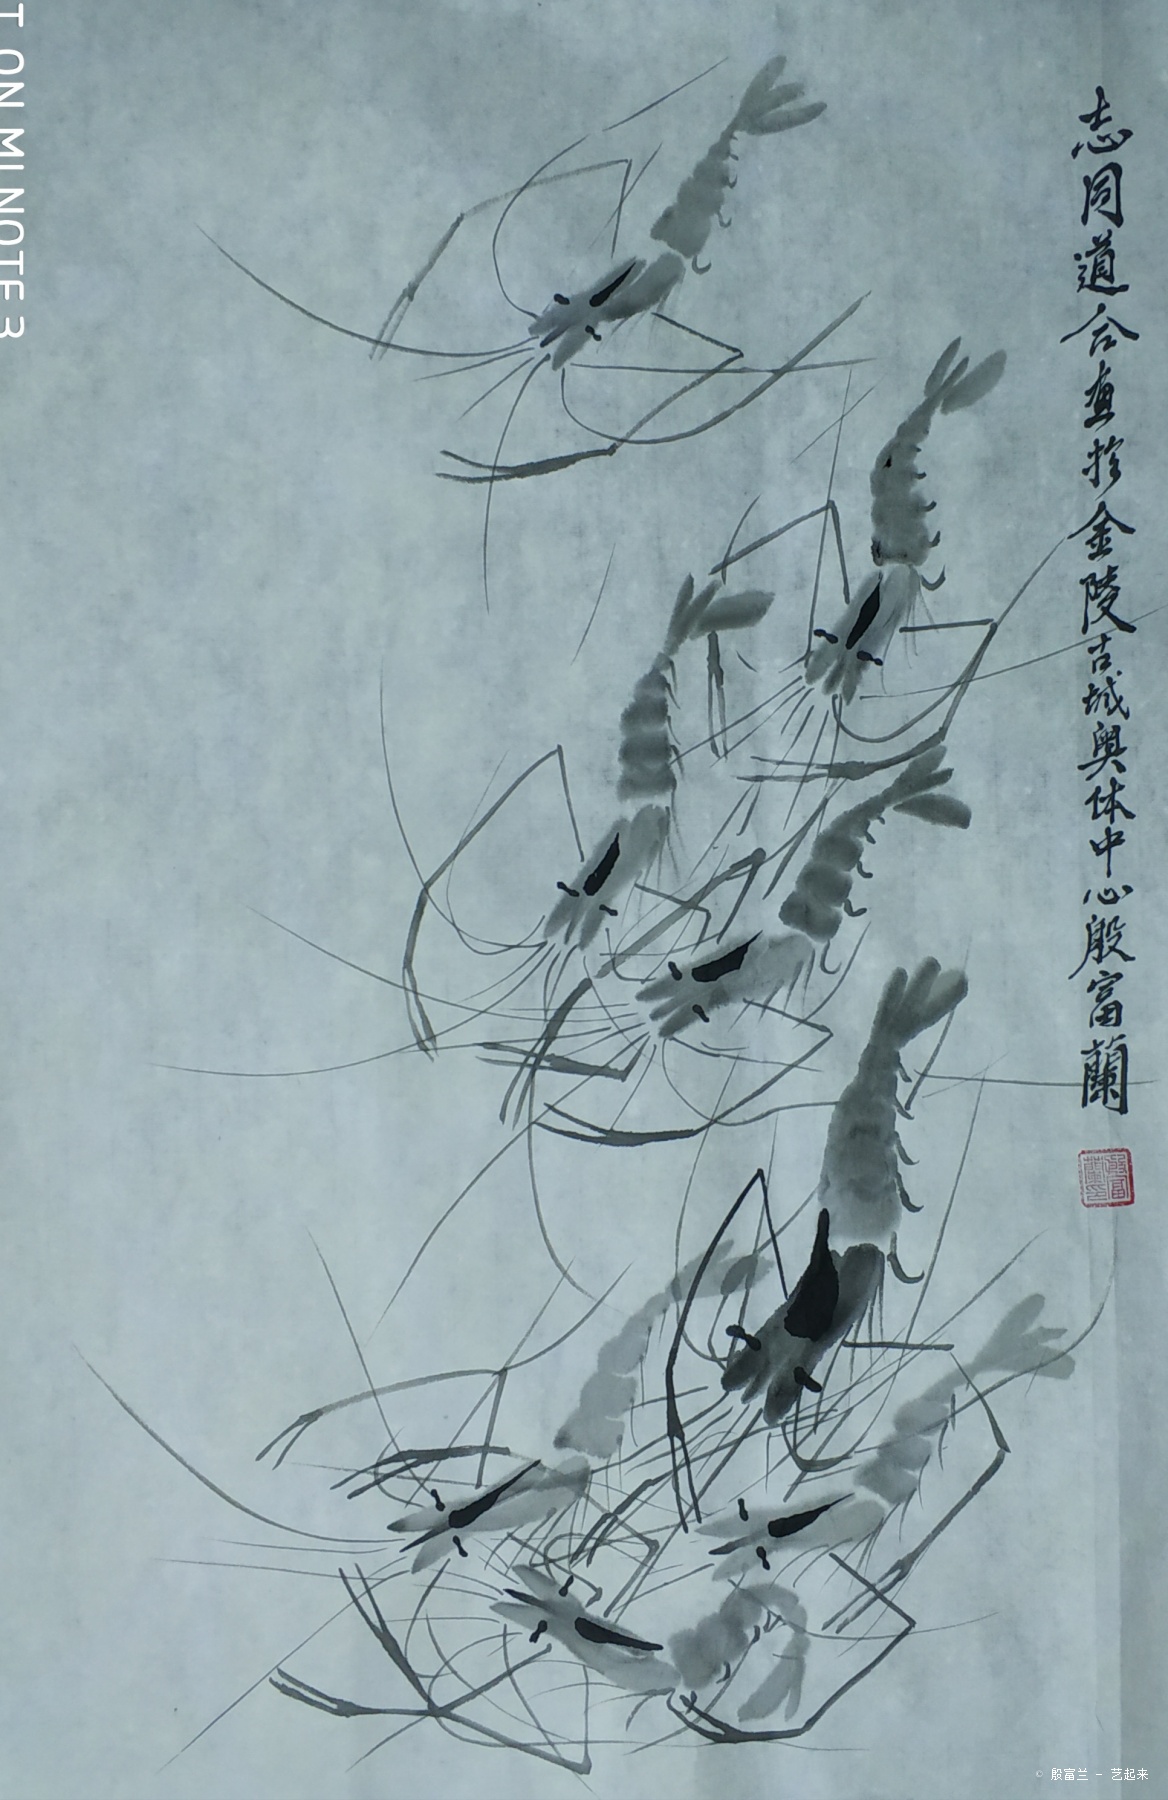 志同道合画於金陵古城奥体中心殷富蘭
T ON MI NOTE 3
© 殷富兰 - 艺起来